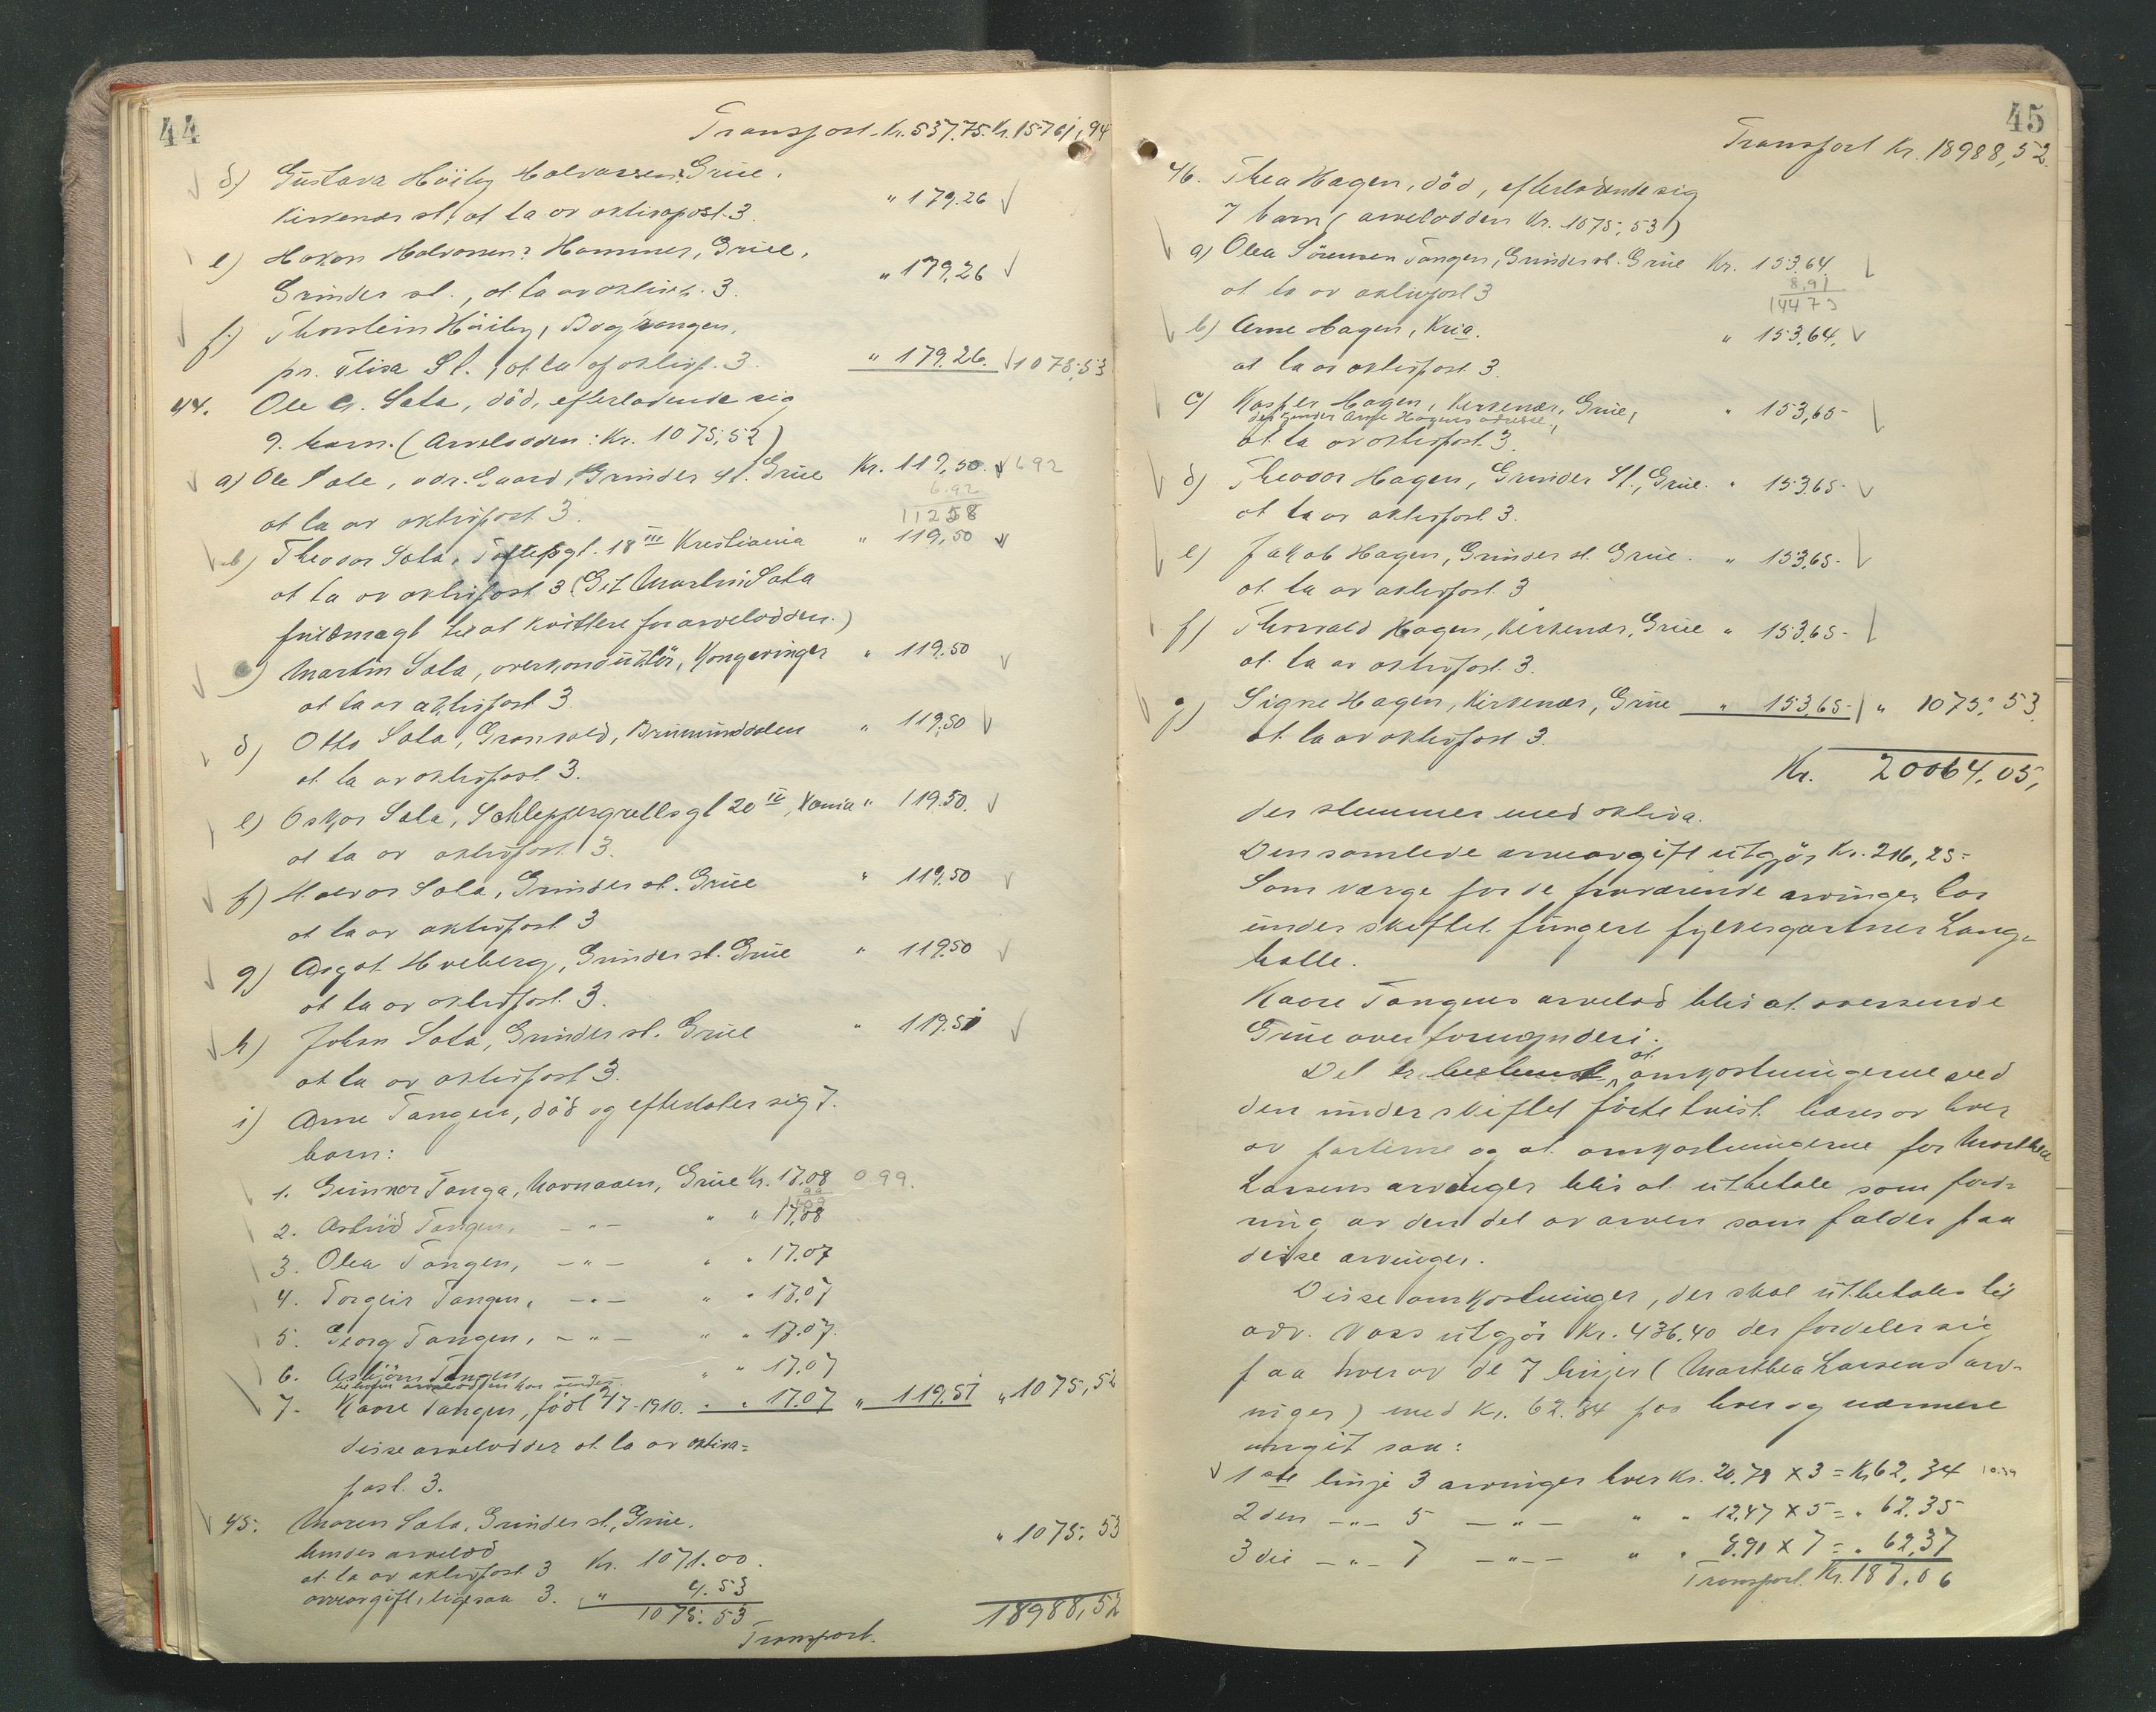 44
Transport Kr. 537.75. Kr. 15761,94
d) Gustava Höiby Halvorsen, Grue.
Kirkenær st., at ta av aktivapost 3. " 179.26
e) Hakon Halvorsen? Hammer, Grue.
Grinder st., at ta av aktivp. 3. " 179,26
f.) Thorstein Höiby, Brandvangen,
pr. Flisa St., at ta af aktivp. 3. " 179.26. 1075,53
44. Ole G. Sata, död, efterladende sig
9. barn. (Arvelodden: Kr. 1075,52)
a) Ole Sata, vdr. Gaard, Grinder St. Grue Kr. 119,50. 692
6.92
at ta av aktivpost 3. 11258
b) Theodor Sata, Toftesgt. 18 III Kristiania " 119,50
at ta av aktivpost 3 (Git Martin Sata
fuldmagt til at kvittere for arvelodden.)
Martin Sata, overkonduktör, Kongsvinger " 119.50
at ta av aktivpost 3.
d) Otto Sata, Granvold, Brumunddalen " 119,50
at ta av aktivpost 3.
e) Oskar Sata, Schleppegrellsgt 20 IV, Kania " 119.50.
at ta av aktivpost 3.
f) Halvor Sata, Grinder st. Grue " 119.50
at ta av aktivpost 3
g) Asgot Hveberg, Grinder st. Grue " 119.50
at ta av aktivpost 3.
h) Johan Sata, Grinder st. Grue " 119.51
at ta av aktivpost 3.
i) Arne Tangen, död og efterlater sig 7.
barn:
1. Gunnar Tanga, Navnaaen, Grue Kr. 17.08 0.99.
99
1609
2. Astrid Tangen, — " — " " 17,08
3. Olea Tangen, — " — " " 17.07
4. Torgeir Tangen, — " — " " 17.07
5. Georg Tangen, — " — " " 17.07.
6. Asbjörn Tangen " " 17.07
7. Kaare Tangen, födt 2/7-1910. " " 17.07 " 119.51 " 1075,52
disse arvelodder at ta av aktiva=
post 3.
45. Maren Sata, Grinder st., Grue. " 1075,53
hendes arvelod
at ta av aktivpost 3 Kr. 1071.00.
arveavgift, ligesaa 3. " 4.53
1075.53 18988,52
Transport.
45
Transport Kr. 18988,52.
46. Thea Hagen, död, efterladende sig
7 barn (arvelodden Kr. 1075,53)
a) Olea Sörensen Tangen, Grinder st. Grue Kr. 153,64.
8,91
at ta av aktivpost 3 14473
b) Arne Hagen, Kria. " 153,64.
at ta av aktivpost 3.
c) Kasper Hagen, Kirkenær, Grue, " 153,65
Arne Hagens adresse.
at ta av aktivpost 3.
d) Theodor Hagen, Grinder St., Grue. " 153,65
at ta av aktivpost 3.
e) Jakob Hagen, Grinder st. Grue. " 153,65
at ta av aktivpost 3
f) Thorvald Hagen, Kirkenær, Grue " 153,65
at ta av aktivpost 3.
g) Signe Hagen, Kirkenær, Grue " 153,65 " 1075,53.
at ta av aktivpost 3.
Kr. 20064,05,
der stemmer med aktiva.
Den samlede arveavgift utgjör Kr. 216,25
Som værge for de fraværende arvinger har
under skiftet fungert fylkesgartner Lang=
balle.
Kaare Tangens arvelod blir at oversende
Grue overformynderi.
Det er at omkostningerne ved
den under skiftet förte tvist bæres av hver
av parterne og at omkostningerne for Marthea
Larsens arvinger blir at utbetale som ford=
ring av den del av arven som falder paa
disse arvinger.
Disse omkostninger, der skal utbetales til
adv. Voss utgjör Kr. 436.40 der fordeler sig
paa hver av de 7 linjer (Marthea Larsens arv=
inger) med Kr. 62.34 paa hver og nærmere
angit saa:
1ste linje 3 arvinger hver Kr. 20.78 x 3 = Kr 62,34
2den — " — 5 — " — " " 12,47 x 5 = " 62,35
3die — " — 7 — " — " " 8.91 x 7 = " 62,37
Transport. Kr. 187.06